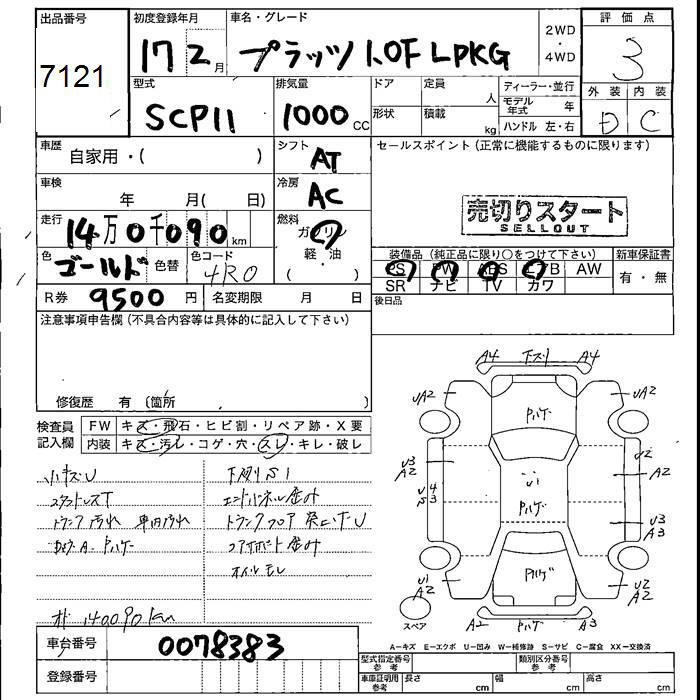 出品番号 初度登録年月 車名・グレード 2WD・4WD 評価点
7121 17 2月 プラッツ 1.0F L PKG 3
型式 排気量 ドア 定員 人 ディーラー・並行 外装 内装
SCP11 1000 CC 形状 積載 kg モデル年式 年 D C
ハンドル 左・右
車歴 自家用・( ) シフト AT セールスポイント (正常に機能するものに限ります)
車検 年 月( 日) 冷房 AC 売切りスタート
SELLOUT
走行 14万0千090km 燃料 ガソリン
軽・油
( ・ )
色 ゴールド 色替 色コード 4R0 装備品 (純正品に限り○をつけて下さい) 新車保証書
PS PW ABS エアB AW 有・無
SR ナビ TV カワ
R券 9500円 名変期限 月 日 後日品
注意事項申告欄 (不具合内容等は具体的に記入して下さい)
修復歴 有 (箇所
検査員記入欄 FW キズ・飛石・ヒビ割・リペア跡・X要
内装 キズ・汚レ・コゲ・穴・スレ・キレ・破レ
小キズU
トランク汚れ 車内汚れ
エンドパネル歪み
トランクフロア突上げU
オイルモレ
140090km
A4 下スリ A4
UA2 Pハゲ UA2
U3 A2 U1 U2
A2
U4 S3 Pハゲ U3 A3
U1 A2 Pハゲ U2 A2
スペア A2 Pハゲ A3
A−キズ E−エクボ U−凹み W−補修跡 S−サビ C−腐食 XX−交換済
車台番号 0078383
登録番号 型式指定番号 参考 類別区分番号 参考
車庫証明用 参考 長さ cm 幅 cm 高さ cm